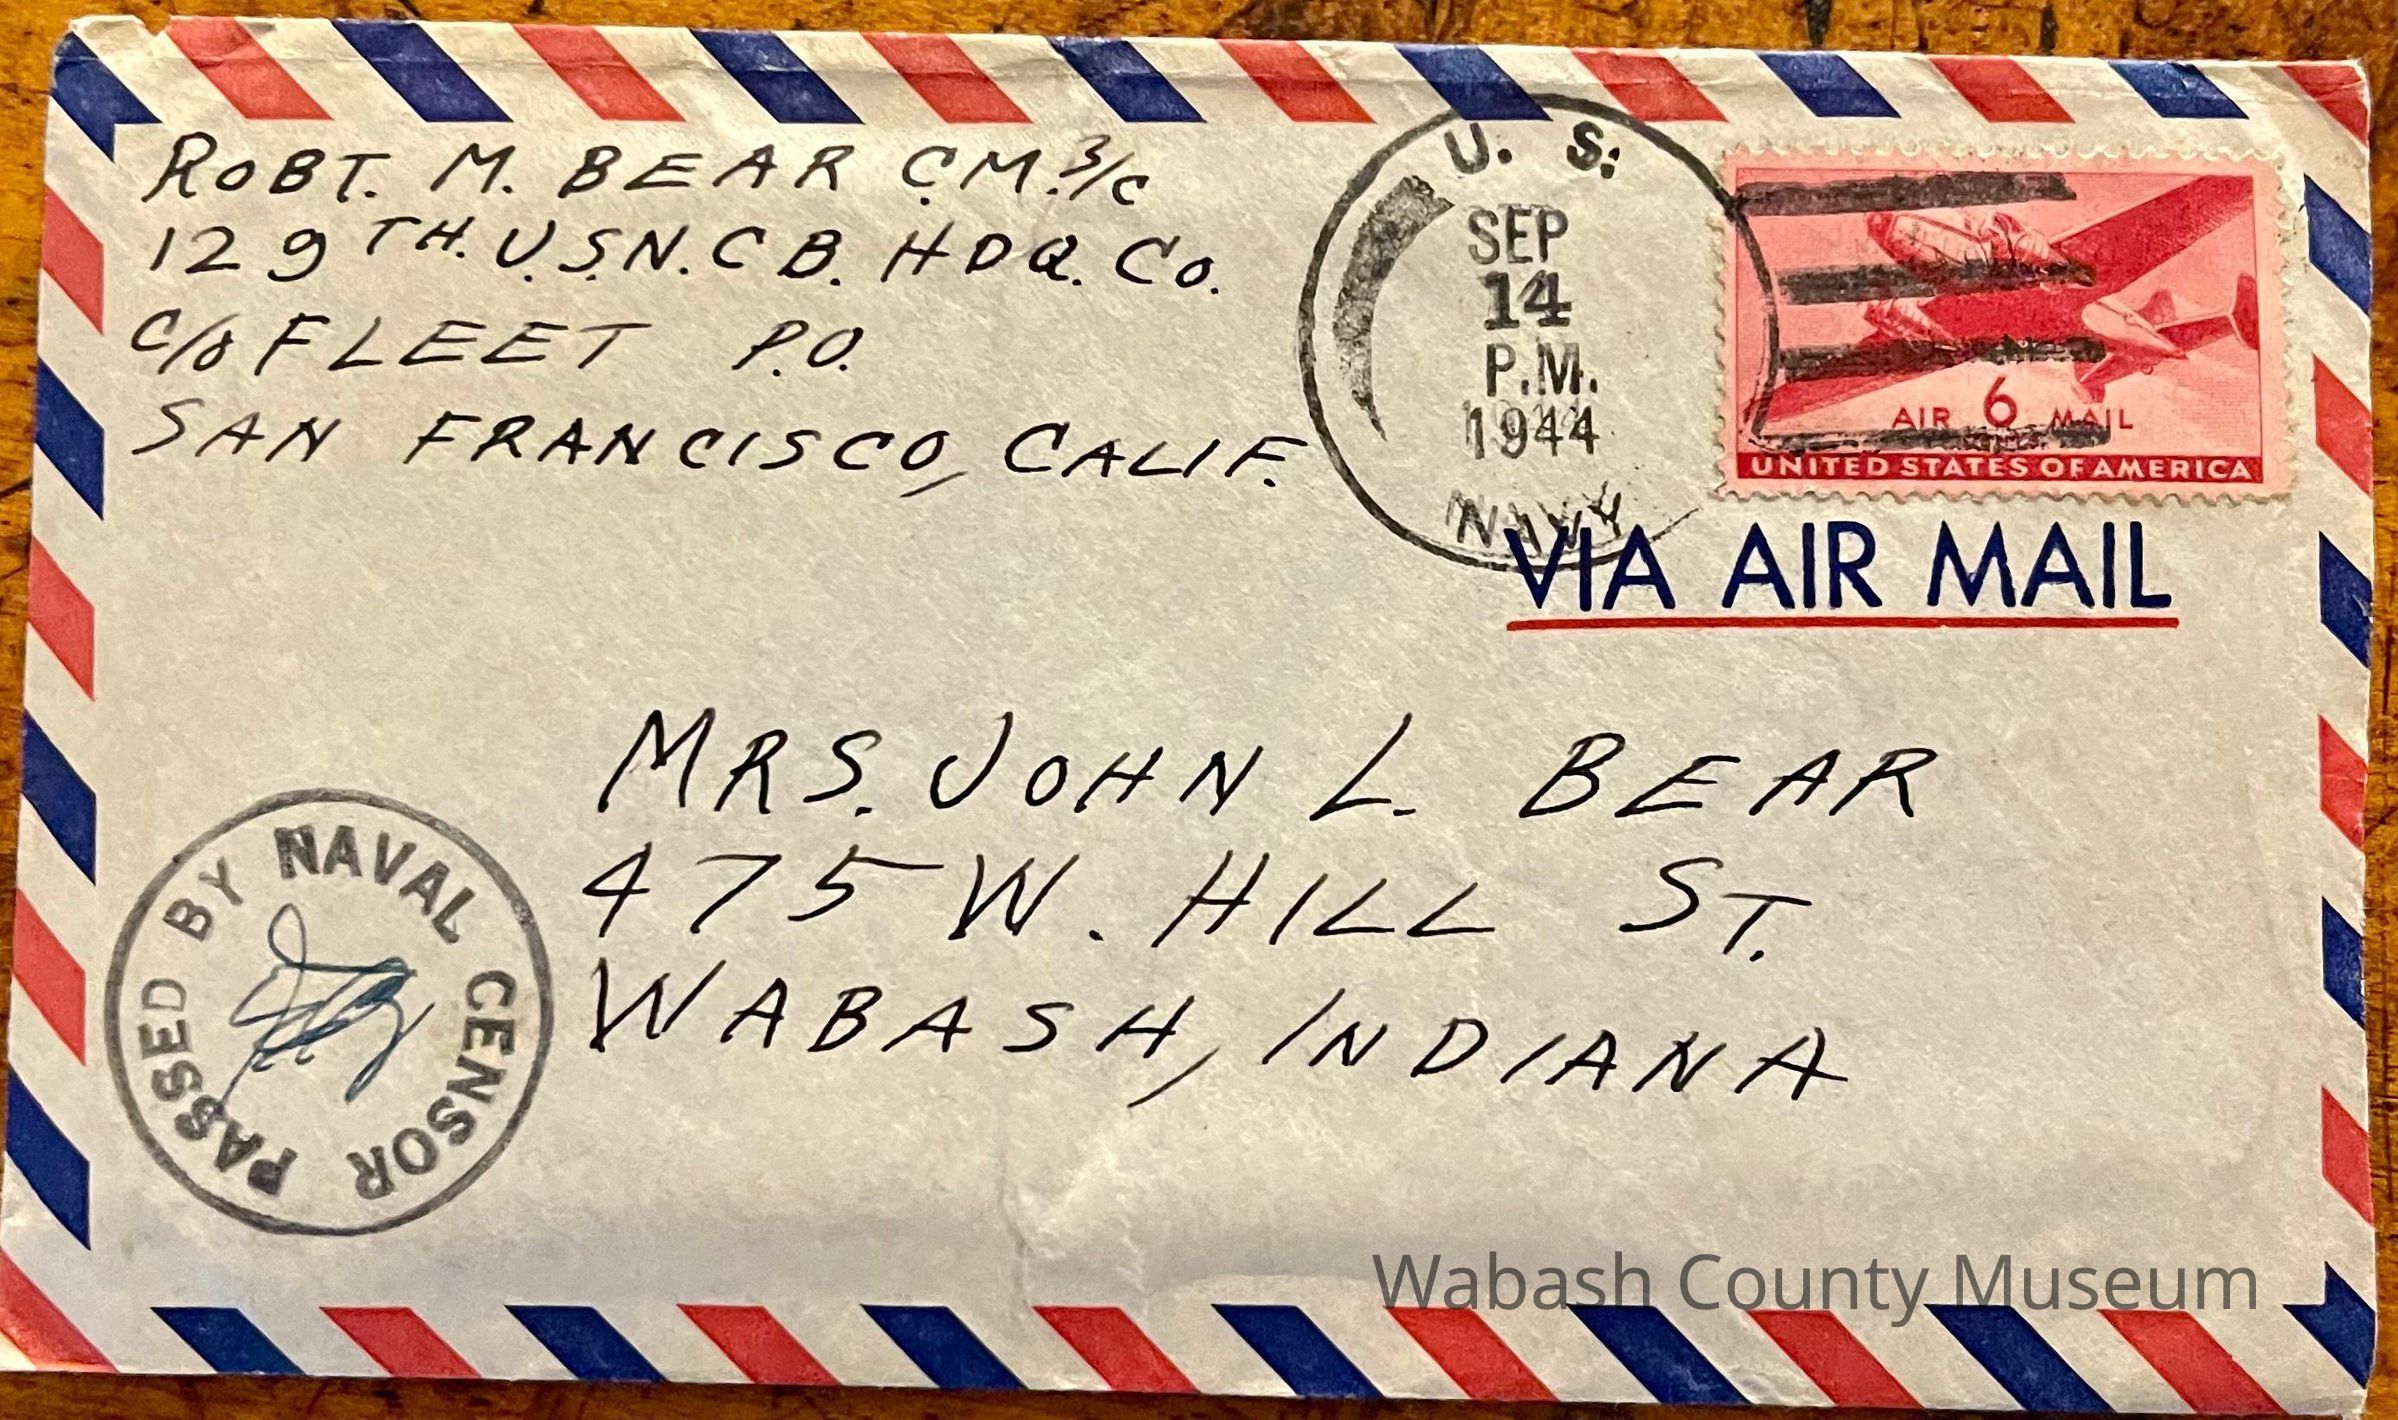 ROBT. M. BEAR C.M. 3/C
129TH. U.S.N.C B. HDQ. Co.
C/O FLEET P.O.
SAN FRANCISCO, CALIF.
U. S.
SEP
14
P.M.
1944
NAVY
AIR 6 MAIL
CENTS
UNITED STATES OF AMERICA
VIA AIR MAIL
MRS. JOHN L. BEAR
475 W. HILL ST.
WABASH, INDIANA
PASSED BY NAVAL CENSOR
Wabash County Museum